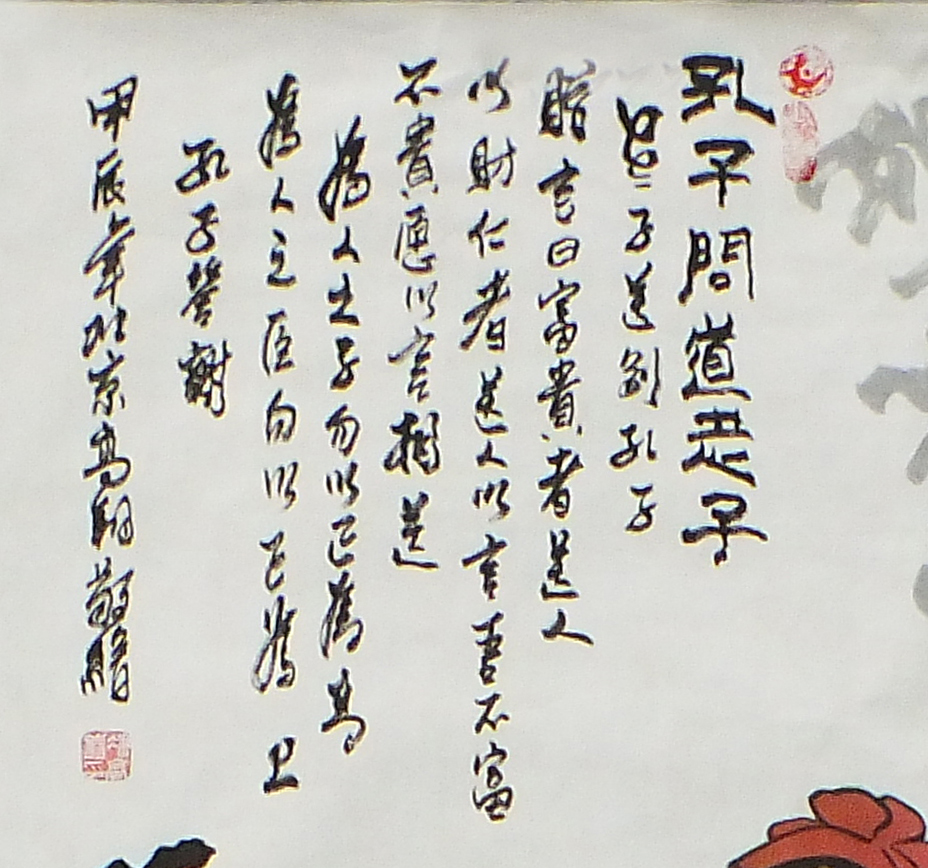 孔子問道老子
老子送别孔子
贈言曰富貴者送人
以财仁者送人以言吾不富
不貴愿以言相送
為人之子勿以己為高
為人之臣勿以己為上
孔子答謝
甲辰年北京高翔敬贈